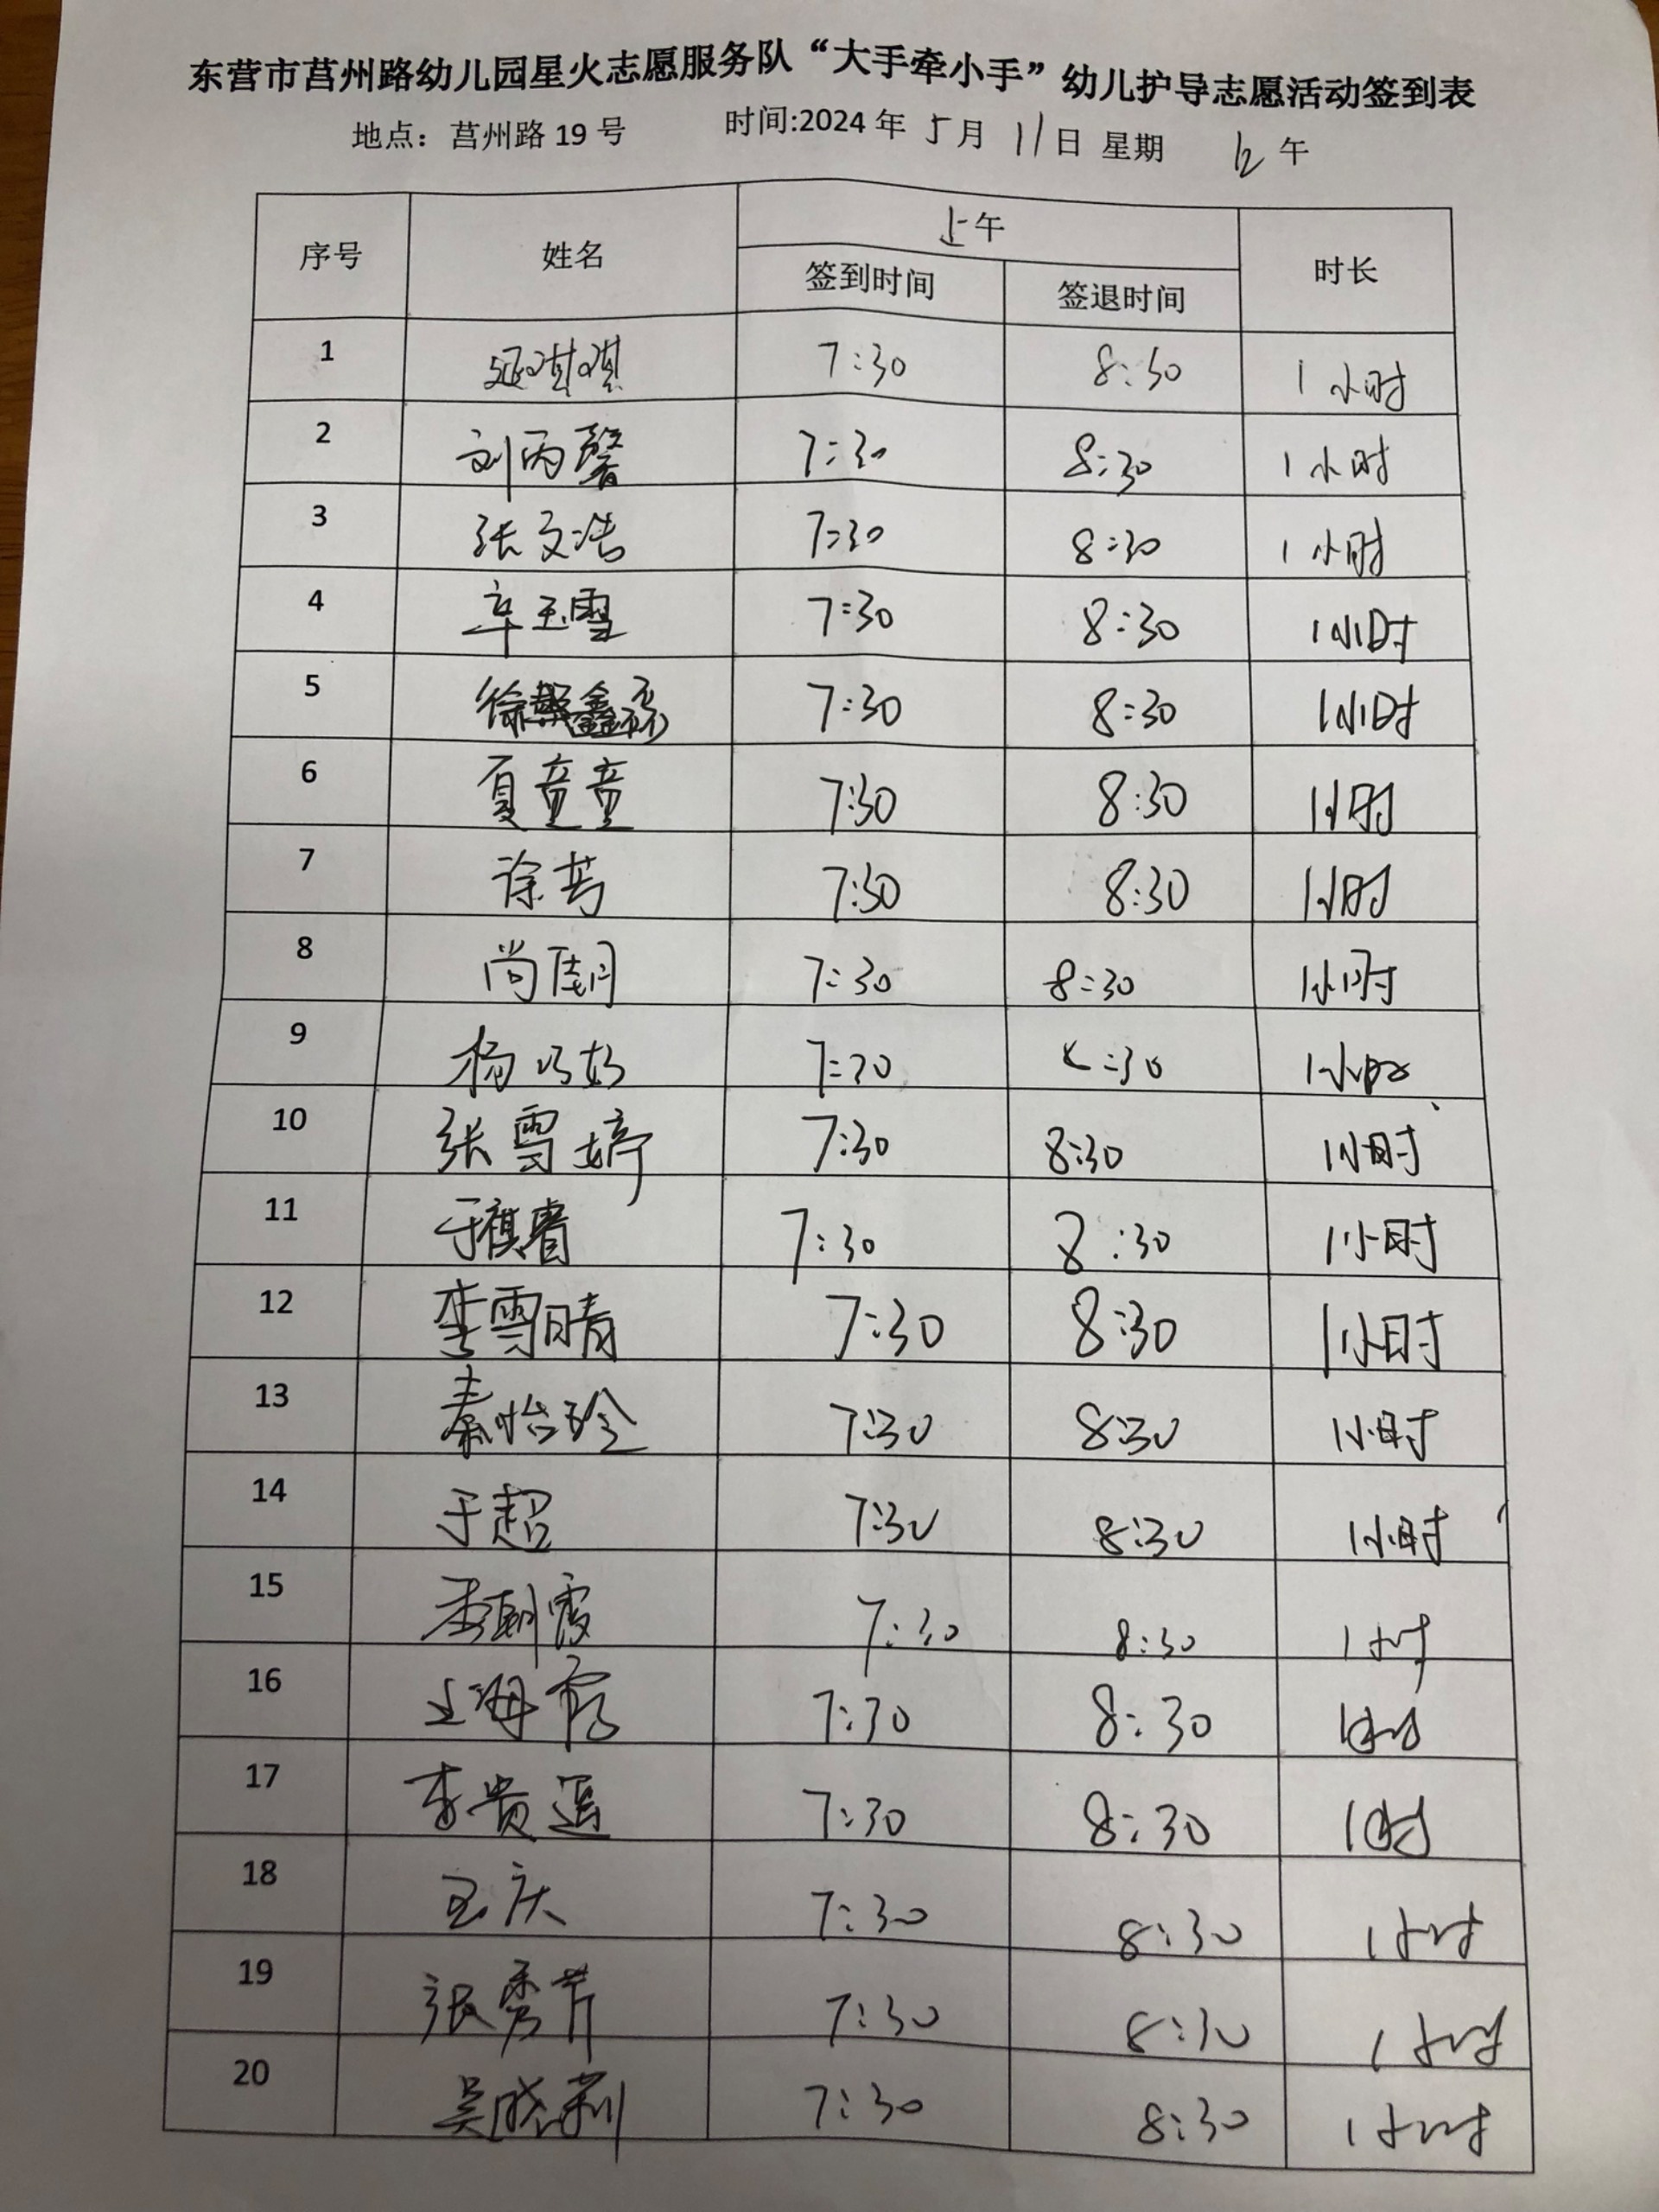 东营市莒州路幼儿园星火志愿服务队“大手牵小手”幼儿护导志愿活动签到表
地点：莒州路 19 号 时间:2024 年 5 月 11 日 星期 午
序号 姓名 上午 时长
签到时间 签退时间
1 琪琪 7:30 8:30 1小时
2 刘丙馨 7:30 8:30 1小时
3 张文浩 7:30 8:30 1小时
4 辛玉雪 7:30 8:30 1小时
5 徐鑫 7:30 8:30 1小时
6 夏童童 7:30 8:30 1小时
7 徐芳 7:30 8:30 1小时
8 尚 7:30 8:30 1小时
9 杨巧 7:30 8:30 1小时
10 张雪婷 7:30 8:30 1小时
11 于祺睿 7:30 8:30 1小时
12 李雪晴 7:30 8:30 1小时
13 秦怡珍 7:30 8:30 1小时
14 于超 7:30 8:30 1小时
15 李朝霞 7:30 8:30 1小时
16 王海霞 7:30 8:30 1小时
17 李贵遥 7:30 8:30 1小时
18 王庆 7:30 8:30 1小时
19 张秀芹 7:30 8:30 1小时
20 吴晓莉 7:30 8:30 1小时